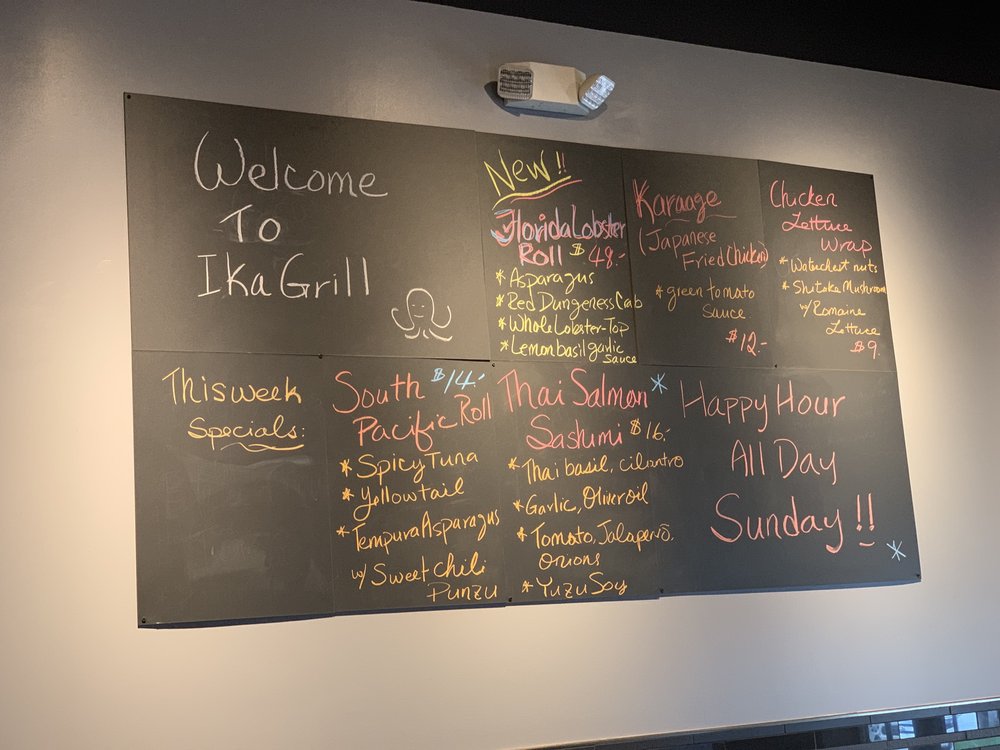 Welcome
To
Ika Grill
New!!
Florida Lobster
Roll $48.-
* Asparagus
* Red Dungeness Crab
* Whole Lobster-Top
* Lemon basil garlic
sauce
Karaage
(Japanese
Fried Chicken)
* green tomato
sauce
$12.-
Chicken
Lettuce
Wrap
* Waterchest nuts
* Shitake Mushroom
w/ Romaine
Lettuce
$9.
This week
Specials:
South $14.-
Pacific Roll
* Spicy Tuna
* Yellowtail
* Tempura Asparagus
w/ Sweet Chili
Punzu
Thai Salmon *
Sashimi $16.-
* Thai basil, cilantro
* Garlic, Oliver oil
* Tomato, Jalapeño,
onions
* Yuzu Soy
Happy Hour
All Day
Sunday!!
*